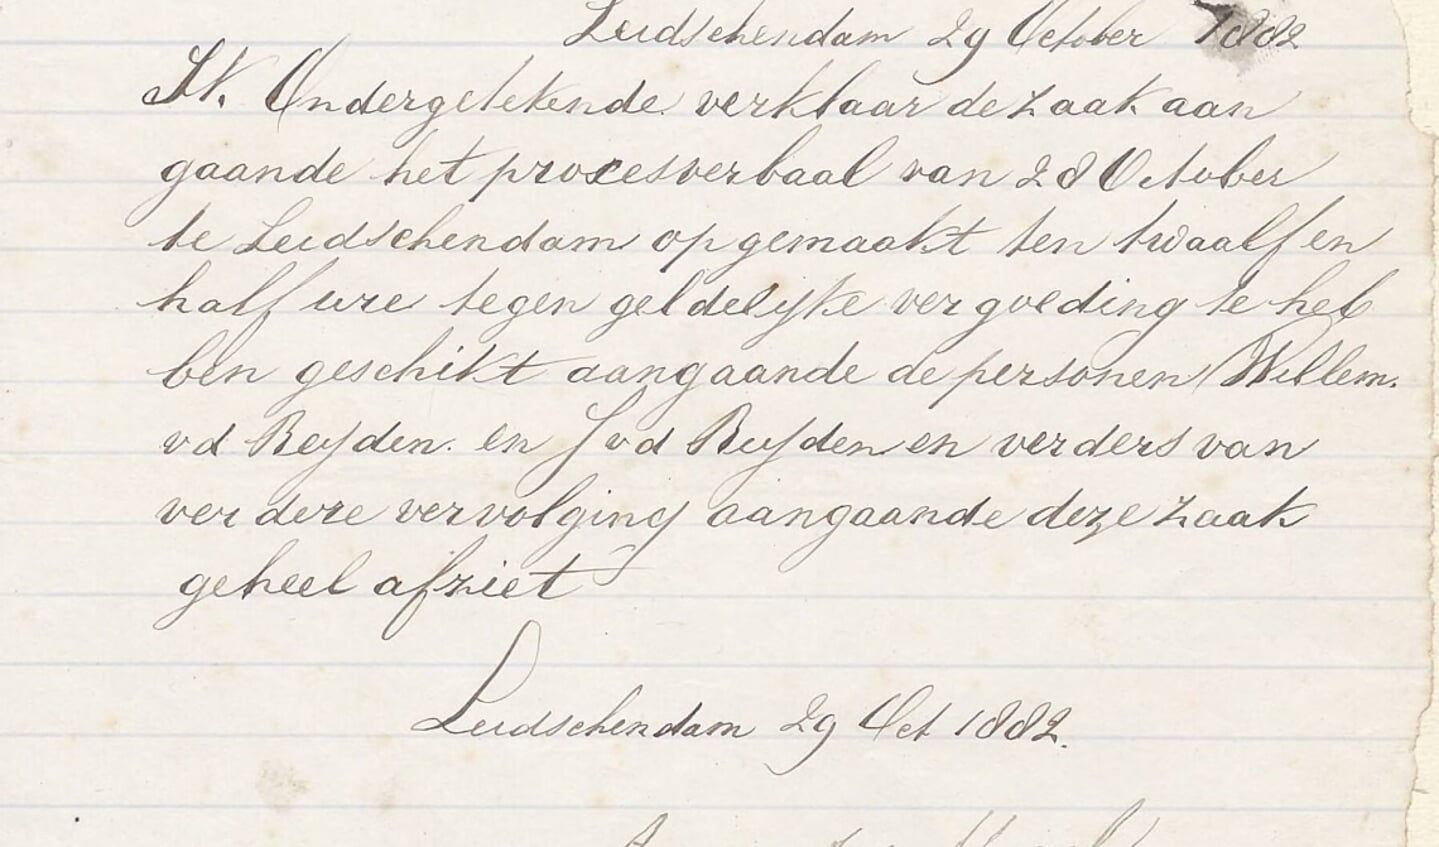 Leidschendam 29 October 1882
Ik Ondergetekende verklaar de zaak aan
gaande het procesverbaal van 28 October
te Leidschendam op gemaakt ten twaalf en
half ure tegen geldelijke vergoeding te heb
ben geschikt aangaande de personen Willem.
vd Reijden. en J vd Reijden en verders van
verdere vervolging aangaande deze zaak
geheel afziet
Leidschendam 29 Oct 1882.